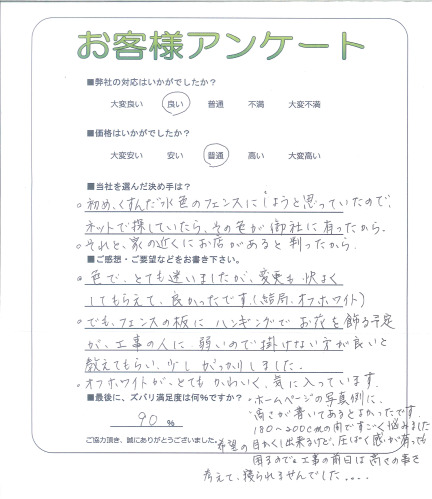 お客様アンケート
■弊社の対応はいかがでしたか?
大変良い 良い 普通 不満 大変不満
■価格はいかがでしたか?
大変安い 安い 普通 高い 大変高い
■当社を選んだ決め手は?
。初め、くすんだ水色のフェンスにしようと思っていたので、
ネットで探していたら、その色が御社に有ったから。
。それと、家の近くにお店があると判ったから。
■ご感想・ご要望などをお書き下さい。
。色で、とても迷いましたが、変更も快よく
してもらえて、良かったです。(結局、オフホワイト)
。でも、フェンスの板にハンギングでお花を飾る予定
が、工事の人に弱いので掛けない方が良いと
教えてもらい、少しがっかりしました。
。オフホワイトが、とてもかわいく、気に入っています。
■最後に、ズバリ満足度は何%ですか?
90 %
ご協力頂き、誠にありがとうございました。
。ホームページの写真例に、
高さが書いてあるとよかったです。
180〜200cmの間ですごく悩みました
希望の目かくし出来るけど、圧ぱく感が有っても
困るので。工事の前日は高さの事を
考えて、寝られませんでした....